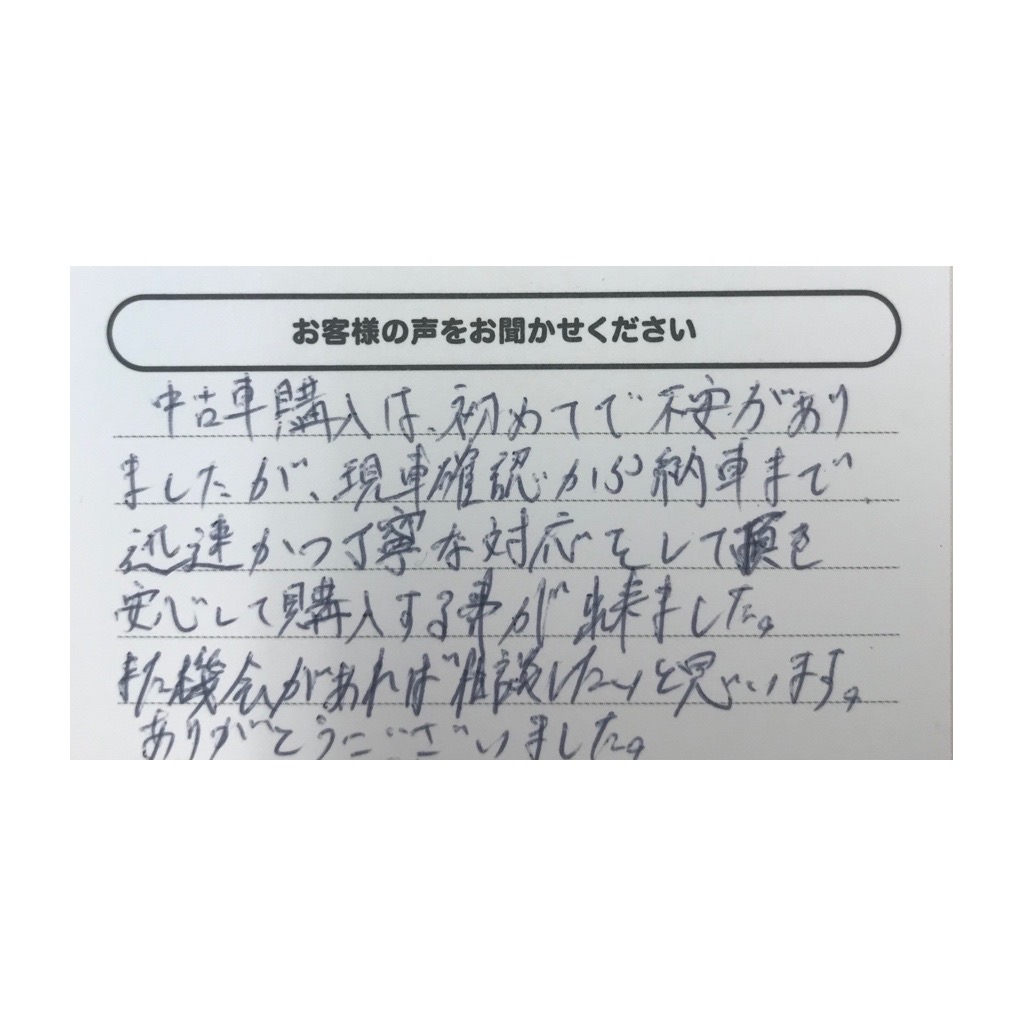 お客様の声をお聞かせください
中古車購入は、初めてで不安があり
ましたが、現車確認から納車まで
迅速かつ丁寧な対応をして頂き
安心して購入する事が出来ました。
また機会があれば相談したいと思います。
ありがとうございました。